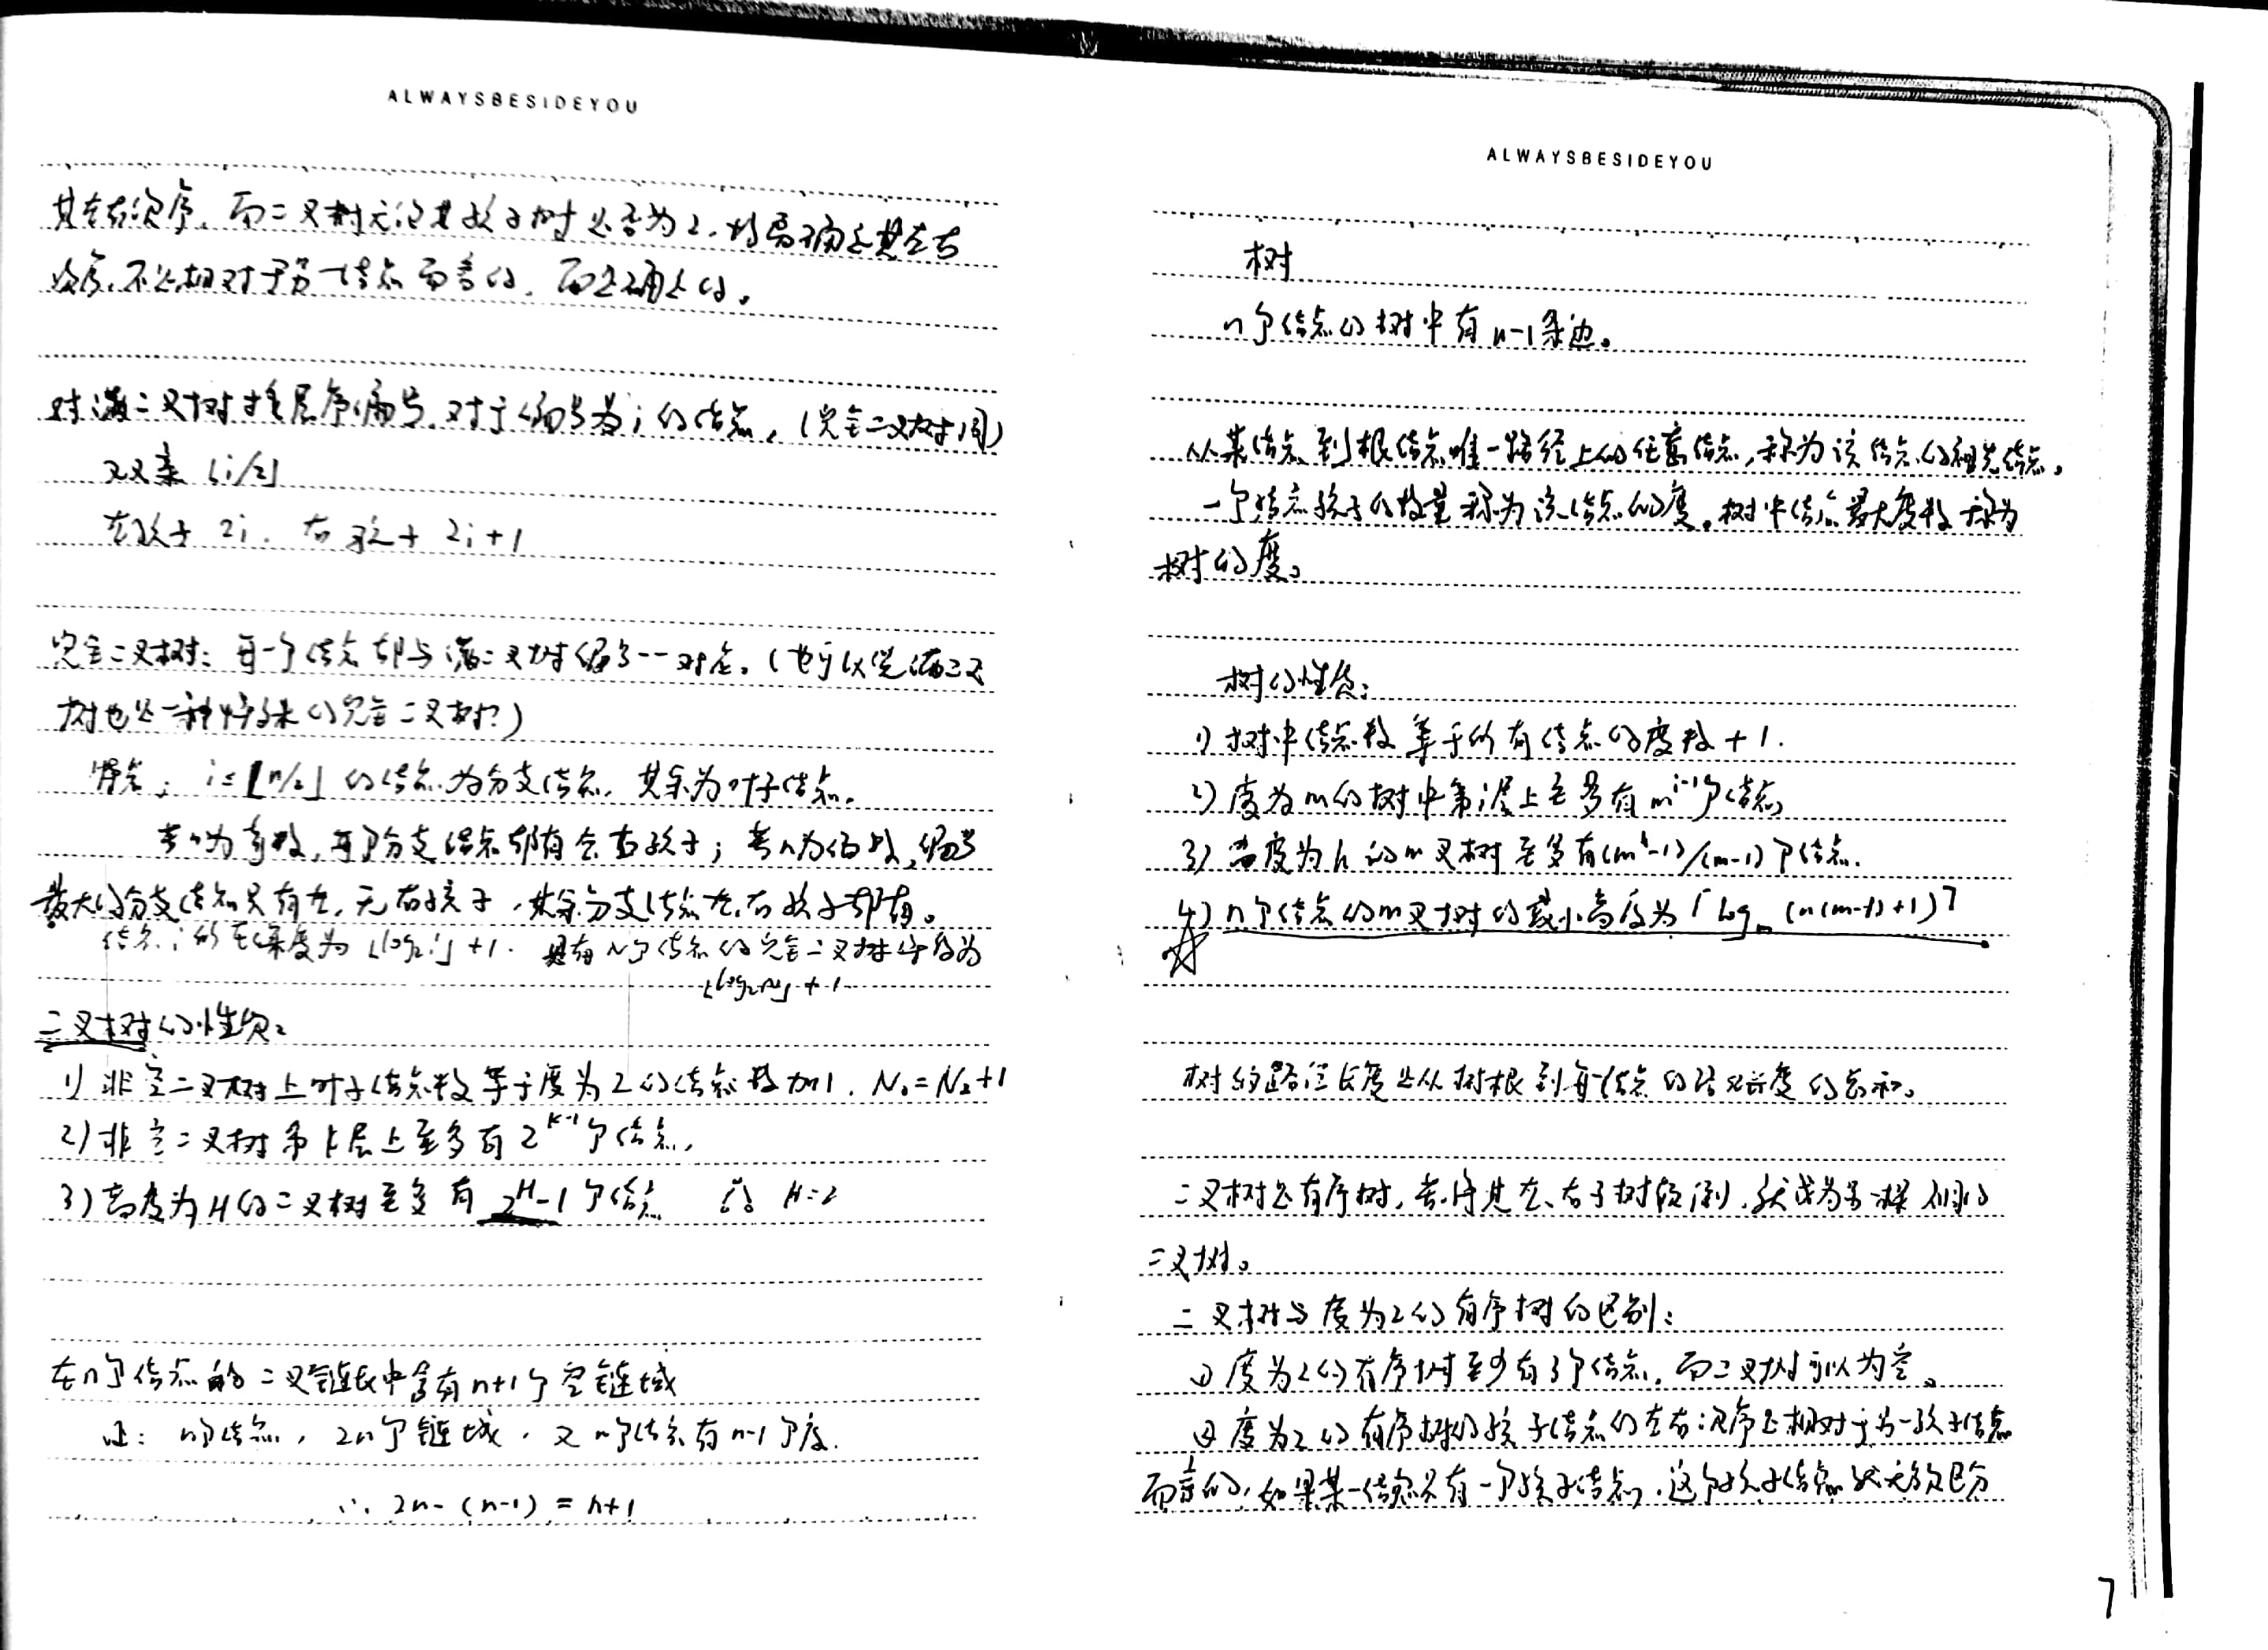 ALWAYSBESIDEYOU
其左右次序,而二叉树无论其孩子树是否为2,均需确定其左右
次序,不是相对于另一结点而言的,而是确定的。
对满二叉树按层序编号,对于编号为i的结点,(完全二叉树同)
双亲 ⌊i/2⌋
左孩子 2i. 右孩子 2i+1
完全二叉树:每一个结点都与满二叉树编号一一对应。(也可以说满二叉
树也是一种特殊的完全二叉树?)
i≤⌊n/2⌋的结点为分支结点,其余为叶子结点.
若n为奇数,每个分支结点都有左右孩子;若n为偶数,编号
最大的分支结点只有左,无右孩子,其余分支结点左、右孩子都有。
结点i所在深度为⌊log₂i⌋+1. 具有N个结点的完全二叉树高度为
⌊log₂N⌋+1
二叉树的性质:
1)非空二叉树上叶子结点数等于度为2的结点数加1. N₀=N₂+1
2)非空二叉树第k层上至多有2^{k-1}个结点.
3)高度为H的二叉树至多有2^H-1个结点 H=2
在n个结点的二叉链表中含有n+1个空链域
证:n个结点,2n个链域,又n个结点有n-1个度.
∴ 2n-(n-1)=n+1
ALWAYSBESIDEYOU
树
n个结点的树中有n-1条边。
从某结点到根结点唯一路径上的任意结点,称为该结点的祖先结点。
一个结点孩子的数量称为该结点的度。树中结点最大度数称为
树的度。
树的性质:
1)树中结点数等于所有结点的度数+1.
2)度为m的树中第i层上至多有m^{i-1}个结点
3)高度为h的m叉树至多有(m^h-1)/(m-1)个结点.
4)n个结点的m叉树的最小高度为⌈logₘ(n(m-1)+1)⌉
树的路径长度是从树根到每结点的路径长度的总和。
二叉树是有序树,若将其左、右子树颠倒,就成为另一棵不同的
二叉树。
二叉树与度为2的有序树的区别:
①度为2的有序树至少有3个结点,而二叉树可以为空。
②度为2的有序树的孩子结点的左右次序是相对于另一孩子结点
而言的,如果某一结点只有一个孩子结点,这个孩子结点就无须区分
7